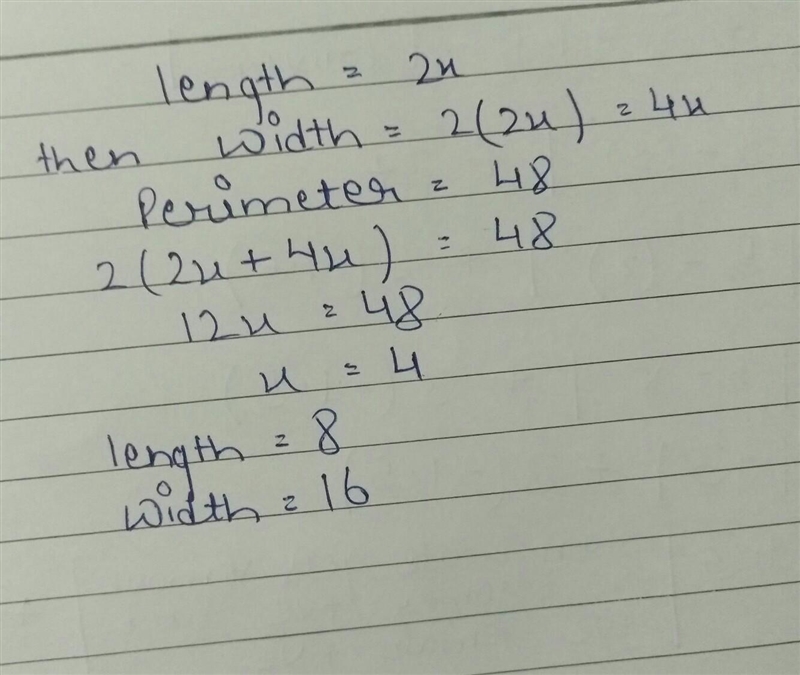 length = 2x
then width = 2(2x) = 4x
Perimeter = 48
2(2x + 4x) = 48
12x = 48
x = 4
length = 8
width = 16